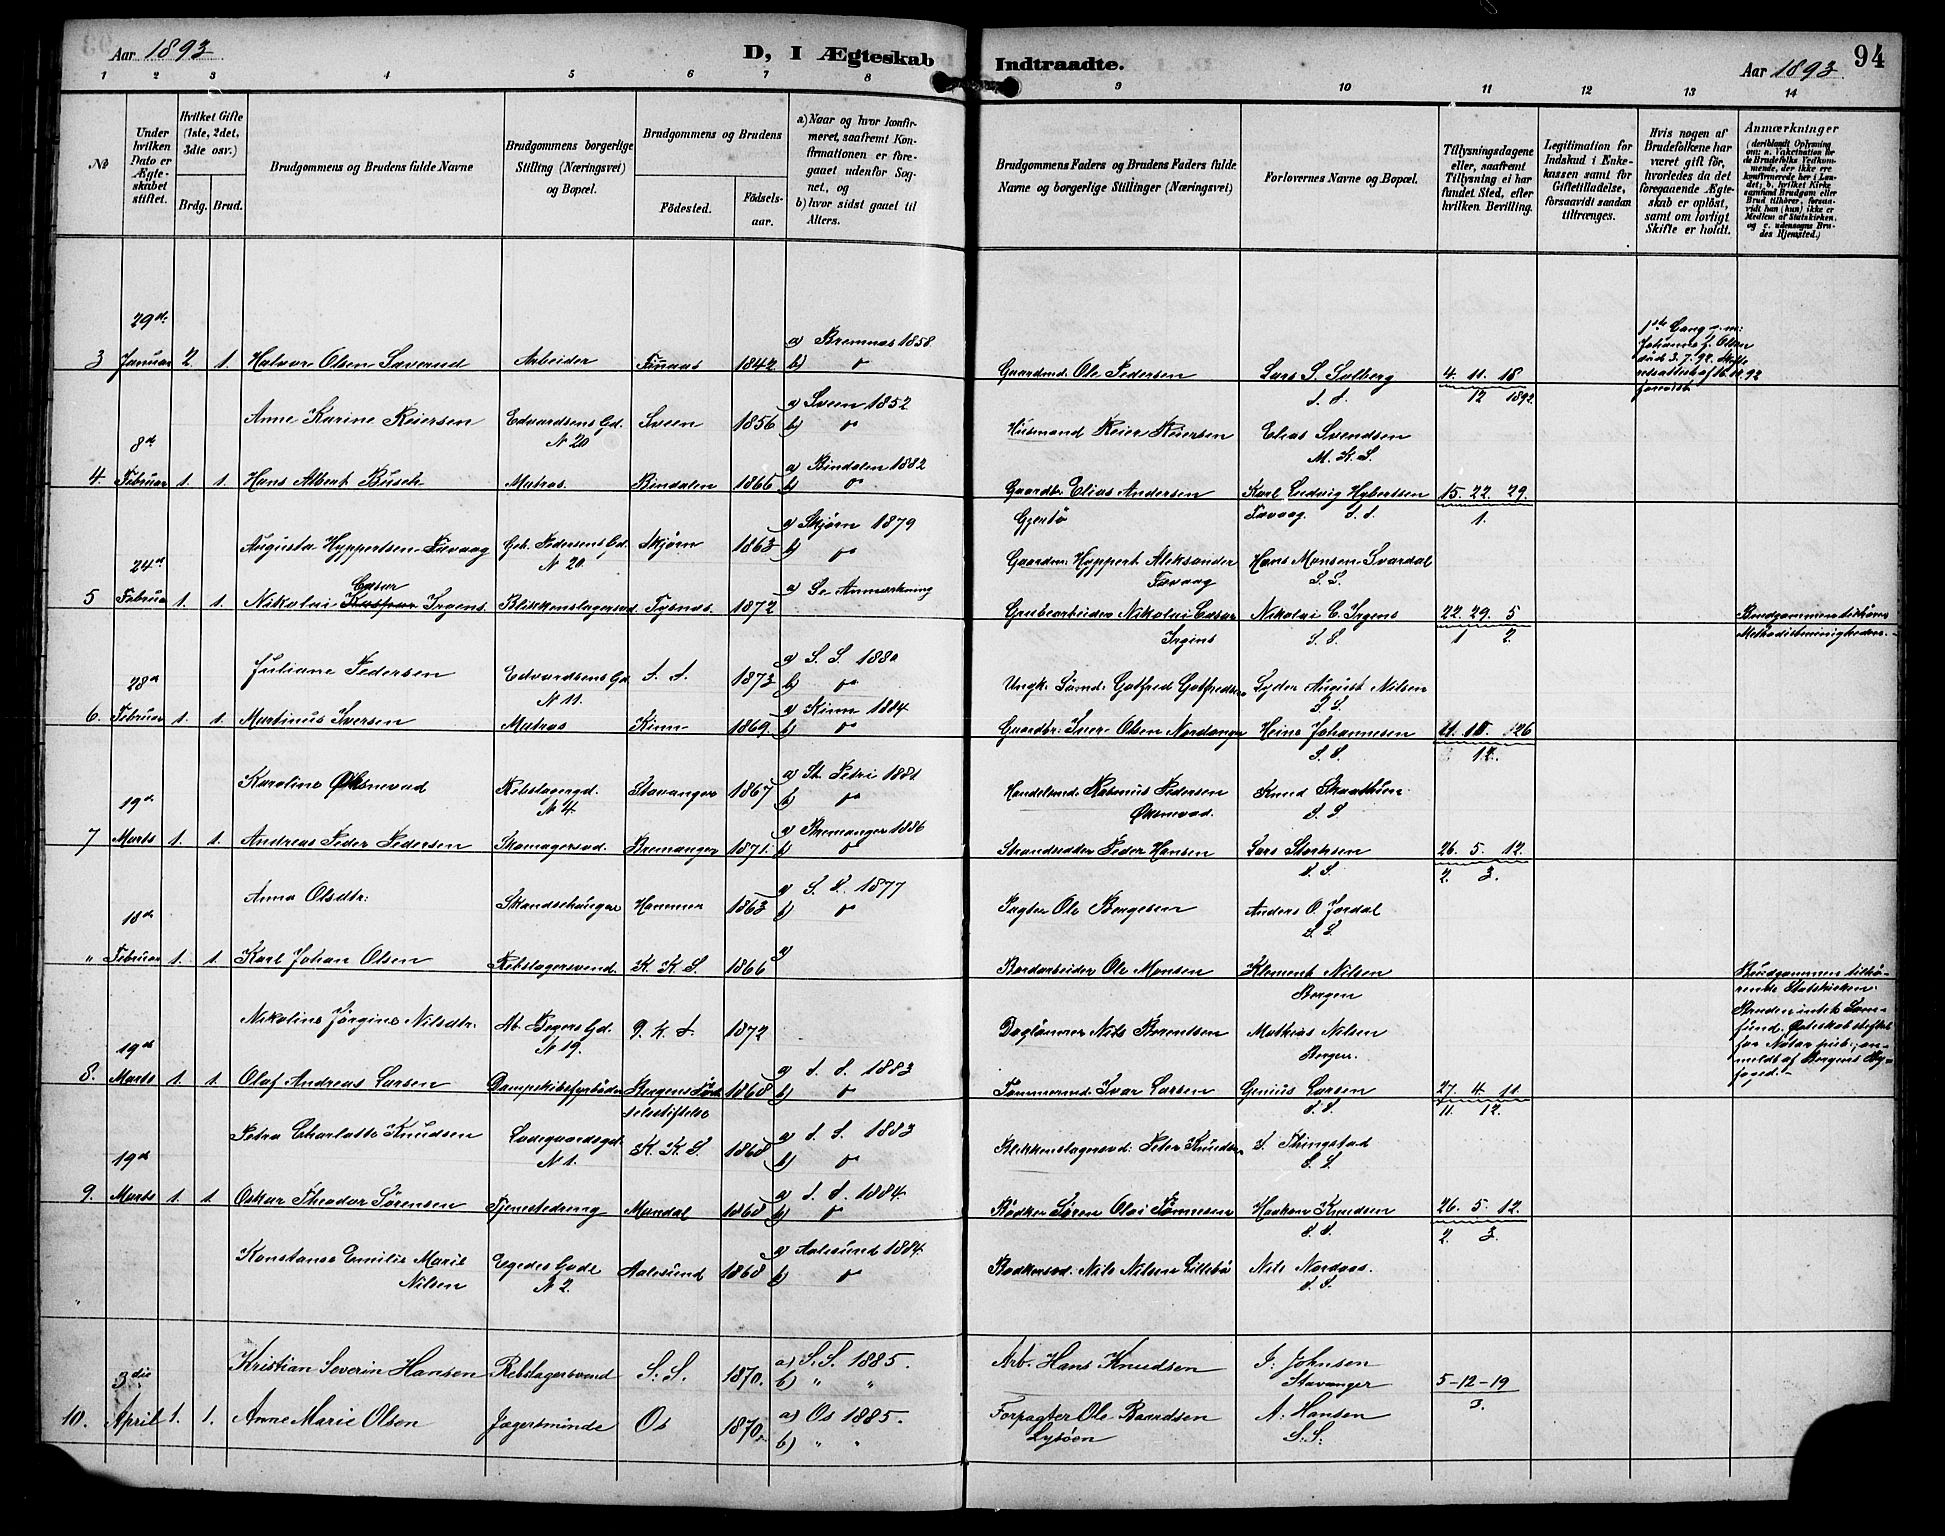 Aar 1893
D, I Ægteskab Indtraadte.
Aar 1893
94
1 2 3 4 5 6 7 8 9 10 11 12 13 14
No
Under hvilken Dato er Ægteskabet stiftet.
Hvilket Gifte (1ste, 2det, 3die osv.)
Brdg. Brud.
Brudgommens og Brudens fulde Navne
Brudgommens borgerlige Stilling (Næringsvei) og Bopæl.
Brudgommens og Brudens
Födested.
Födselsaar.
a) Naar og hvor konfirmeret, saafremt Konfirmationen er foregaaet udenfor Sognet, og
b) hvor sidst gaaet til Alters.
Brudgommens Faders og Brudens Faders fulde Navne og borgerlige Stillinger (Næringsvei)
Forlovernes Navne og Bopæl.
Tillysningsdagene eller, saafremt Tillysning ei har fundet Sted, efter hvilken Bevilling.
Legitimation for Indskud i Enkekassen samt for Giftetilladelse, forsaavidt saadan tiltrænges.
Hvis nogen af Brudefolkene har været gift för, hvorledes da det foregaaende Ægteskab er oplöst, samt om lovligt Skifte er holdt.
Anmærkninger
(deriblandt Oplysning om: a. Vakcination for de Brudefolks Vedkommende, der ikke ere konfirmerede her i Landet; b. hvilket Kirkesamfund Brudgom eller Brud tilhörer, forsaavidt han (hun) ikke er Medlem af Statskirken, og c. udensogns Brudes Hjemsted.)
29de
3 Januar 2 1. Halvor Olsen Saverud Arbeider Finaas 1842 a) Bremnas 1858. b) " Gaardmd. Ole Pedersen Lars S. Solberg S. S. 4. 11. 18 12 1892
1ste Gang m. Johanne J. Olsen död 3.7.92. Skifteretsattest af 16.11.92 forevist
Anne Karine Reiersen Edvardsens Gd. N 20 Sveen 1856 a) Sveen 1852 b) " Husmand Reier Reiersen Elias Svendsen M. K. S.
8de
4. Februar 1. 1. Hans Albert Busch Matros Bindalen 1865 a) Bindalen 1882 b) " Gaardbr. Elias Andersen Karl Ludvig Hybertsen 15. 22. 29. 1.
Augusta Hyppertsen Favaag Geb. Pedersens Gd. N 20 Skjörn 1863 a) Skjörn 1879 b) " Gaardm. Hyppert Aleksander Favaag Hans Monsen Svardal S. S.
24de
5 Februar 1. 1. Nikolai Cæsar Irgens Blikkenslagersvd Tysnæs 1872 a) Se Anmærkning Grubearbeider Nikolai Cæsar Irgens Nikolai C. Irgens S. S. 22. 29. 5 1 2. Brudgommen tilhörer Methodistmenigheden.
Juliane Pedersen Edvardsens Gd. N 11. S. S. 1873 a) S. S. 1880 b) " Ungk. Sömd. Gotfred Gotfredsen Lyder August Nilsen S. S.
28de
6. Februar 1. 1. Martinus Iversen Matros Kinn 1869. a) Kinn 1884 b) " Gaardbr. Iver Olsen Nordanger Heine Johannesen S. S. 12.
Karoline Øksnevad Rebslagergd. N 4. Stavanger 1867 a) St. Petri 1881 b) " Handelsmd. Rasmus Pedersen Øksnevad. Knud Skaathun S. S.
19de
7 Marts 1. 1. Andreas Peder Pedersen Skomagersvd. Bremanger 1871. a) Bremanger 1886 b) " Strandsidder Peder Hansen Lars Storksen S. S. 26. 5. 12. 2. 3.
Anna Olsdtr. Skandsehaugen Hammer 1863 a) S. S. 1877 b) " Pagter Ole Börgesen Anders O. Jordal S. S.
18de
" Februar 1. 1. Karl Johan Olsen Rebslagersvend. K. K. S. 1866 a) Bordarbeider Ole Monsen Klement Nilsen Bergen
Brudgommen tilhörende Statskirken. Bruden intet Samfund. Ægteskab stiftet for Notar. pub.; anmeldt af Bergens Byfoged.
Nikoline Jörgine Nilsdtr. Ab. Pegers Gd. N 19. D. K. S. 1872 Daglönner Nils Berentsen Mathias Nilsen Bergen.
19de
8. Marts 1. 1. Olaf Andreas Larsen Dampskibsfyrböder Bergens Födselsstiftelse 1868 a) S. S. 1883 b) " Tömmermd. Ivar Larsen Genius Larsen S. S. 27. 4. 11 11. 12.
Petra Charlotte Knudsen Ladegaardsgd. N 1. K. K. S. 1868 a) S. S. 1883 b) " Blikkenslagersvd. Peter Knudsen S. Thingstad S. S.
19de
9. Marts 1. 1. Oskar Theodor Sörensen Tjenestedreng Mandal 1868 a) S. S. 1884. b) " Bödker Sören Olai Tönnesen Haakon Knudsen S. S. 26. 5. 12. 2. 3.
Konstanse Emilie Marie Nilsen Egedes Gade N 2. Aalesund 1868 a) Aalesund 1884. b) " Bödkersvd. Nils Nilsen Lillebö Nils Nordaas. S. S.
3die
10. April 1. 1. Kristian Severin Hansen Rebslagersvend S. S. 1870. a) S. S. 1885. b) " " Arb. Hans Knudsen J. Johnsen Stavanger 5-12-19 3.
Anne Marie Olsen Jægersminde Os 1870. a) Os 1885. b) " " Forpagter Ole Baardsen Lysöen A. Hansen S. S.